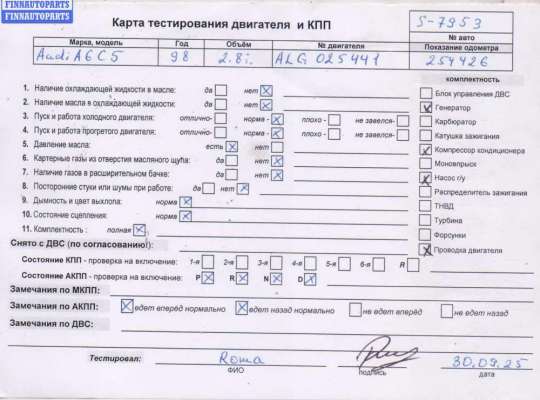 FINNAUTOPARTS
FINNAUTOPARTS
Карта тестирования двигателя и КПП
S-7953
№ авто
Марка, модель Год Объём № двигателя Показание одометра
Audi A6C5 98 2.8i. ALG 025441 254426
комплектность
1. Наличие охлаждающей жидкости в масле: да нет
Блок управления ДВС
2. Наличие масла в охлаждающей жидкости: да нет
Генератор
3. Пуск и работа холодного двигателя: отлично- норма - плохо - не завелся-
Карбюратор
4. Пуск и работа прогретого двигателя: отлично- норма - плохо - не завелся-
Катушка зажигания
5. Давление масла: есть нет
Компрессор кондиционера
6. Картерные газы из отверстия масляного щупа: да нет
Моновпрыск
7. Наличие газов в расширительном бачке: да нет
Насос г/у
8. Посторонние стуки или шумы при работе: да нет
Распределитель зажигания
9. Дымность и цвет выхлопа: норма
ТНВД
10. Состояние сцепления: норма
Турбина
11. Комплектность : полная
Форсунки
Снято с ДВС (по согласованию):
Проводка двигателя
Состояние КПП - проверка на включение: 1-я 2-я 3-я 4-я 5-я 6-я R
Состояние АКПП - проверка на включение: P R N D
Замечания по МКПП:
Замечания по АКПП: едет вперёд нормально едет назад нормально не едет вперёд не едет назад
Замечания по ДВС:
Тестировал: Roma 30.09.25
ФИО подпись дата